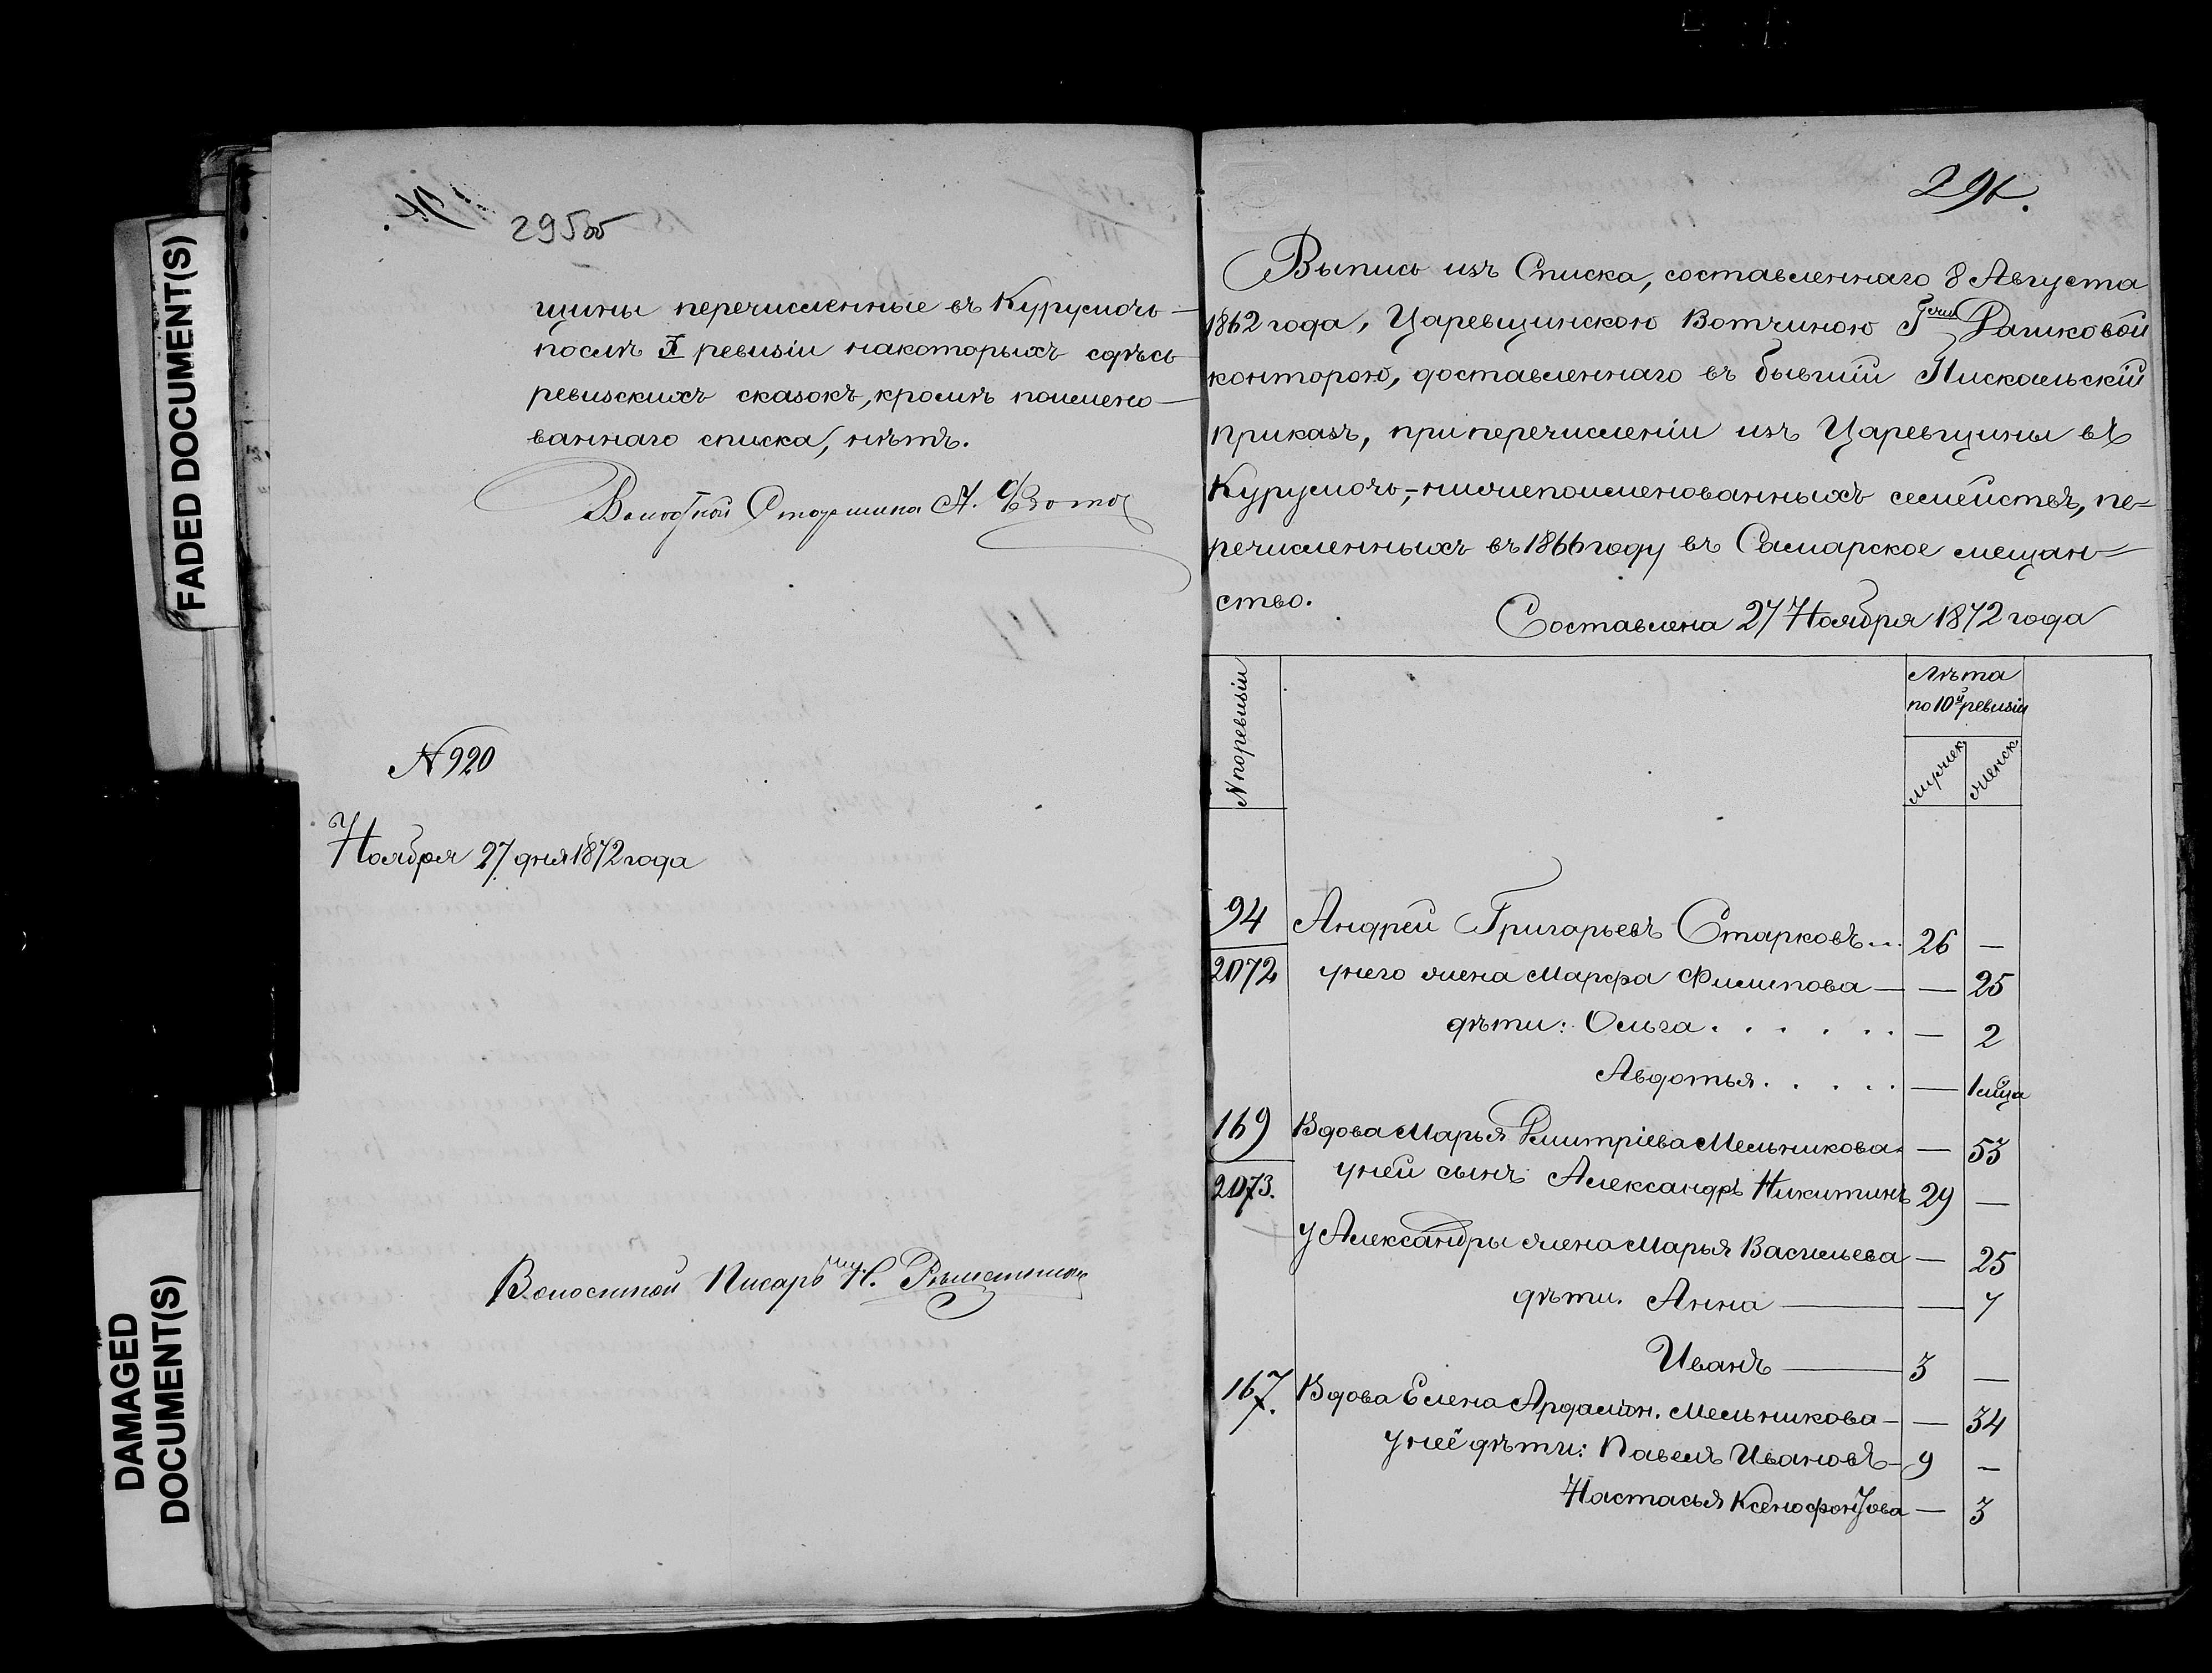 FADED DOCUMENT(S)
DAMAGED
DOCUMENT(S)
295об
щины перечисленные въ Курумочь
послѣ X ревизіи накоторыхъ сдѣсь
ревизскихъ сказокъ, кромѣ поимено-
ваннаго списка, нѣтъ.
Волостной Старшина А.
N 920
Ноября 27 дня 1872 года
Волостной Писарь Н.
296.
Выпись изъ Списка, составленнаго 8 Августа
1862 года, Царевщинскою Вотчиною Г Рашковой
конторою, доставленнаго въ бывшій Пискальскій
приказъ, при перечисленіи изъ Царевщины въ
Курумочь, нижепоименованныхъ семействъ, пе=
речисленныхъ въ 1866 году въ Самарское мещан=
ство.
Составлена 27 Ноября 1872 года
N по ревизіи
Лѣта
по 10й ревизіи
мужек.
женск.
94 Андрей Григарьевъ Старковъ... 26 —
2072 у него жена Марфа Филипова — — 25
дѣти: Ольга . . . . . . — 2
Авдотья . . . . . — 1 мца
169 Вдова Марья Дмитріева Мельникова — 53
2073. у ней сынъ Александръ Никитинъ 29 —
у Александры жена Марья Васильева — 25
дѣти. Анна — — 7
Иванъ — 3 —
167. Вдова Елена Ардаліон. Мельникова — — 34
у неё дѣти: Павелъ Ивановъ — 9 —
Настасья Ксенофонтова — 3